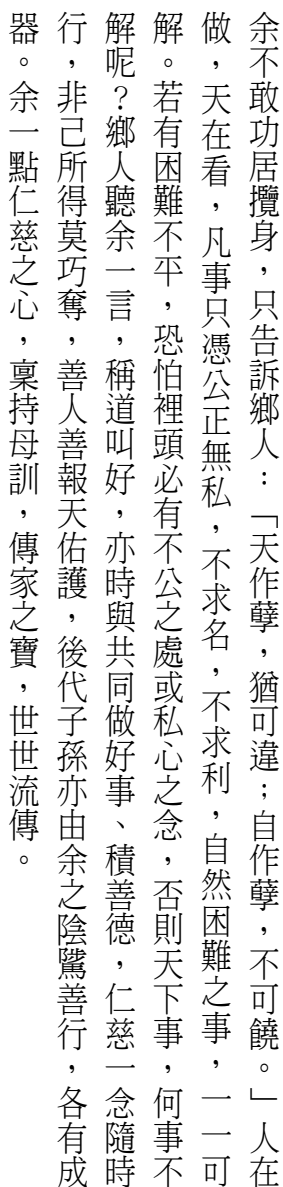 余不敢功居攬身，只告訴鄉人：「天作孽，猶可違；自作孽，不可饒。」人在
做，天在看，凡事只憑公正無私，不求名，不求利，自然困難之事，一一可
解。若有困難不平，恐怕裡頭必有不公之處或私心之念，否則天下事，何事不
解呢？鄉人聽余一言，稱道叫好，亦時與共同做好事、積善德，仁慈一念隨時
行，非己所得莫巧奪，善人善報天佑護，後代子孫亦由余之陰騭善行，各有成
器。余一點仁慈之心，稟持母訓，傳家之寶，世世流傳。